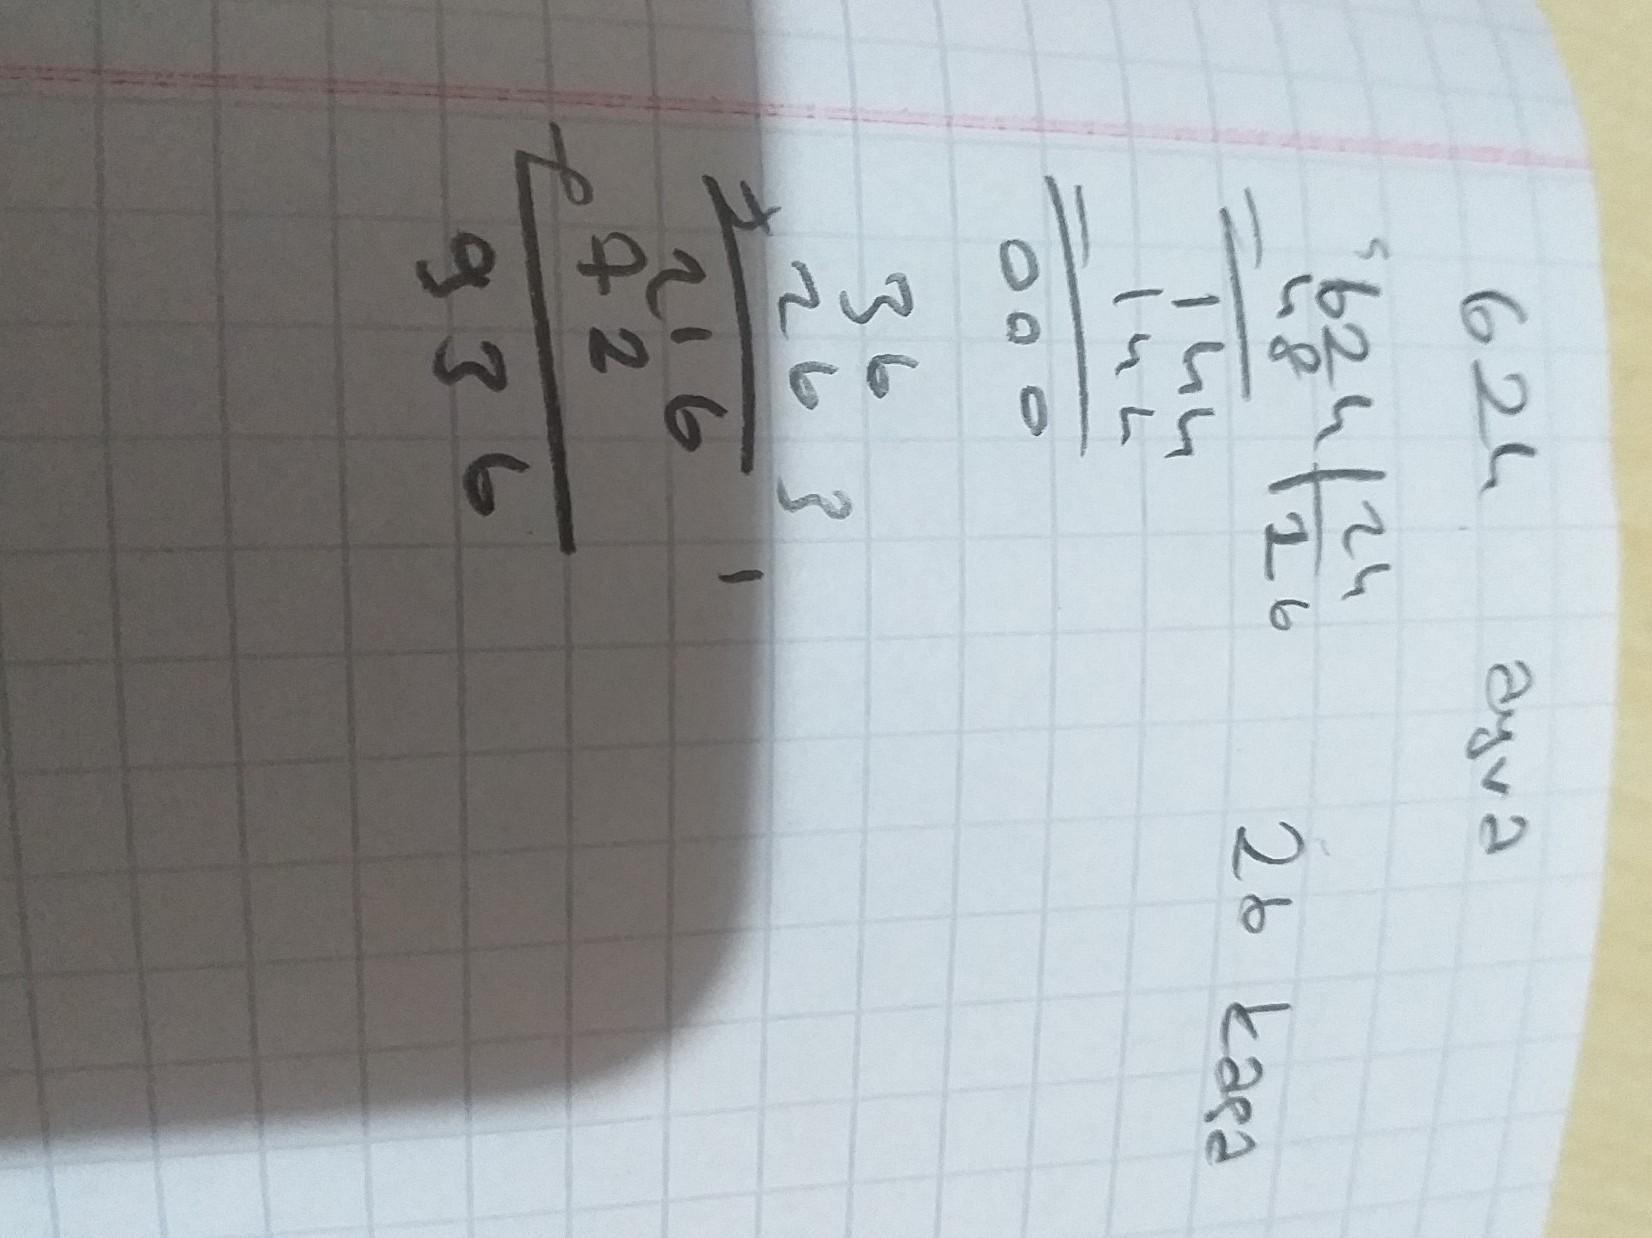 624 ayva
5
624 | 24
48 26
144 26 kasa
144
000
36
x 26 3
216 1
+ 72
936